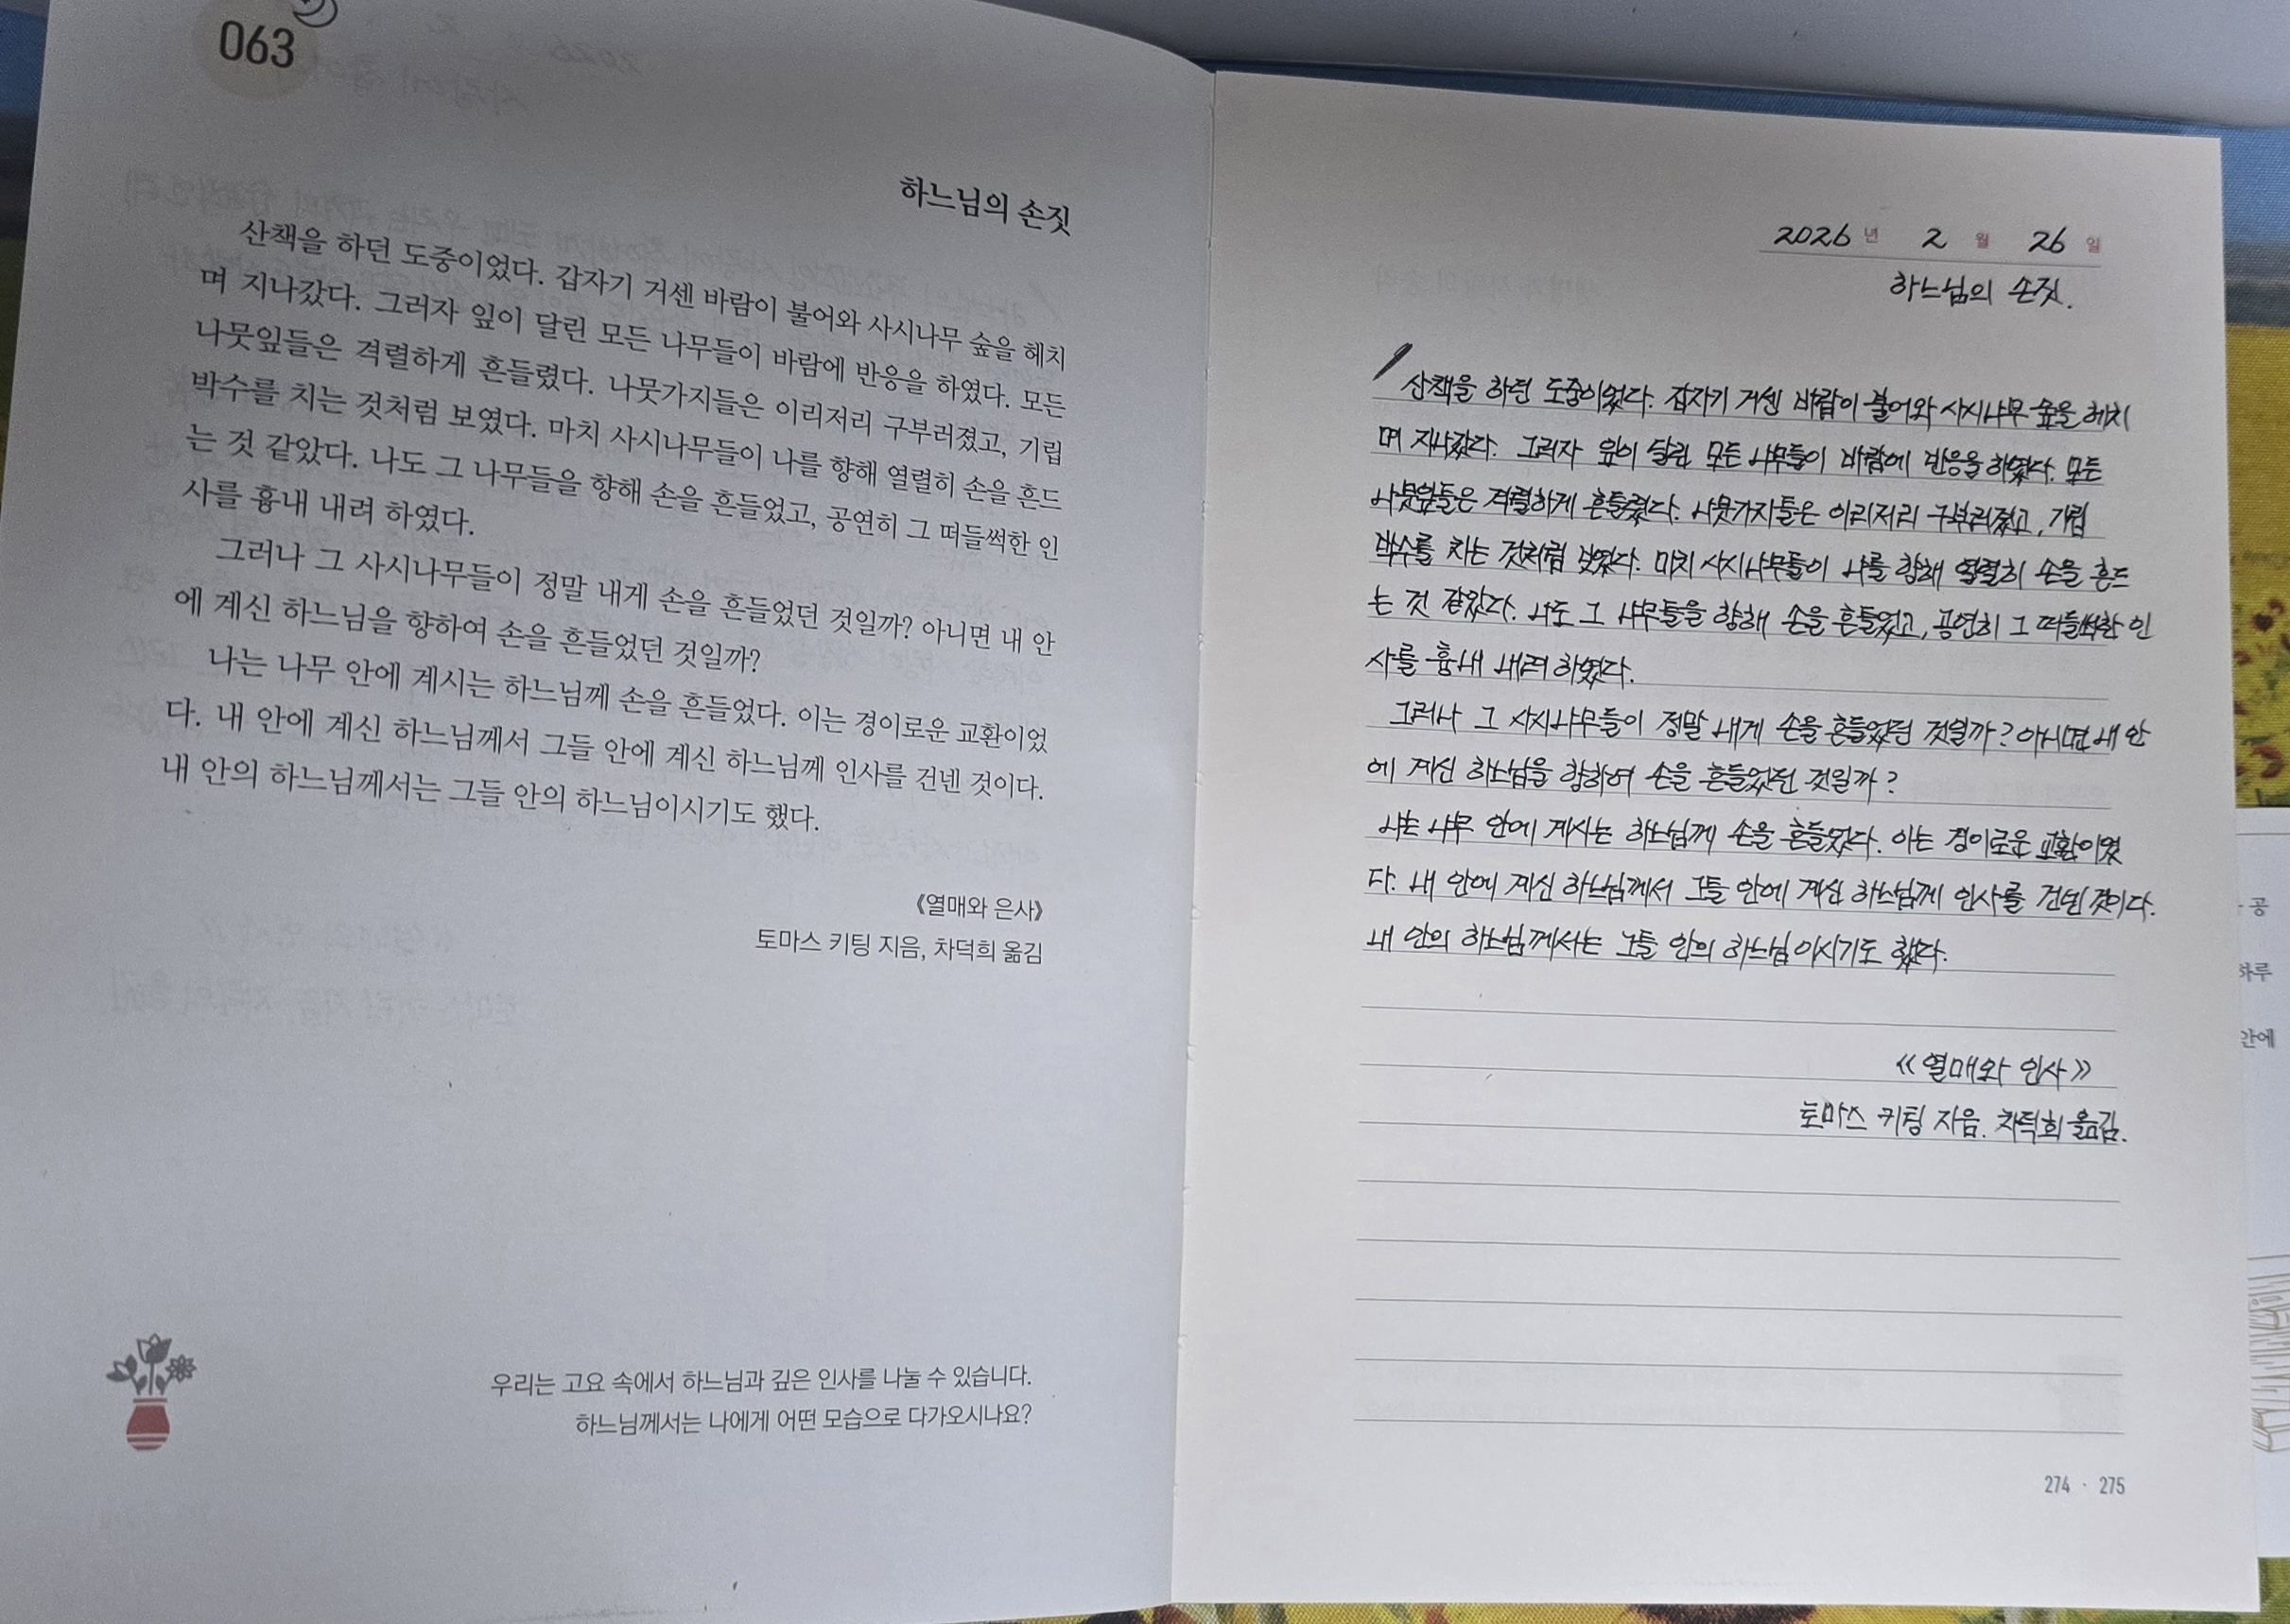 063
하느님의 손짓
산책을 하던 도중이었다. 갑자기 거센 바람이 불어와 사시나무 숲을 헤치
며 지나갔다. 그러자 잎이 달린 모든 나무들이 바람에 반응을 하였다. 모든
나뭇잎들은 격렬하게 흔들렸다. 나뭇가지들은 이리저리 구부러졌고, 기립
박수를 치는 것처럼 보였다. 마치 사시나무들이 나를 향해 열렬히 손을 흔드
는 것 같았다. 나도 그 나무들을 향해 손을 흔들었고, 공연히 그 떠들썩한 인
사를 흉내 내려 하였다.
그러나 그 사시나무들이 정말 내게 손을 흔들었던 것일까? 아니면 내 안
에 계신 하느님을 향하여 손을 흔들었던 것일까?
나는 나무 안에 계시는 하느님께 손을 흔들었다. 이는 경이로운 교환이었
다. 내 안에 계신 하느님께서 그들 안에 계신 하느님께 인사를 건넨 것이다.
내 안의 하느님께서는 그들 안의 하느님이시기도 했다.
《열매와 은사》
토마스 키팅 지음, 차덕희 옮김
우리는 고요 속에서 하느님과 깊은 인사를 나눌 수 있습니다.
하느님께서는 나에게 어떤 모습으로 다가오시나요?
2026 년 2 월 26 일
하느님의 손짓.
산책을 하던 도중이었다. 갑자기 거센 바람이 불어와 사시나무 숲을 헤치
며 지나갔다. 그러자 잎이 달린 모든 나무들이 바람에 반응을 하였다. 모든
나뭇잎들은 격렬하게 흔들렸다. 나뭇가지들은 이리저리 구부러졌고, 기립
박수를 치는 것처럼 보였다. 마치 사시나무들이 나를 향해 열렬히 손을 흔드
는 것 같았다. 나도 그 나무들을 향해 손을 흔들었고, 공연히 그 떠들썩한 인
사를 흉내 내려 하였다.
그러나 그 사시나무들이 정말 내게 손을 흔들었던 것일까? 아니면 내 안
에 계신 하느님을 향하여 손을 흔들었던 것일까?
나는 나무 안에 계시는 하느님께 손을 흔들었다. 이는 경이로운 교환이었
다. 내 안에 계신 하느님께서 그들 안에 계신 하느님께 인사를 건넨 것이다.
내 안의 하느님께서는 그들 안의 하느님이시기도 했다.
《열매와 인사》
토마스 키팅 지음. 차덕희 옮김.
274 · 275
공
하루
안에